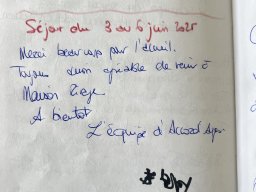 Séjour du 3 au 6 juin 2025
Merci beaucoup pour l'accueil.
Toujours aussi agréable de venir à
Maison Rouge
A bientôt
L'équipe d'Accord